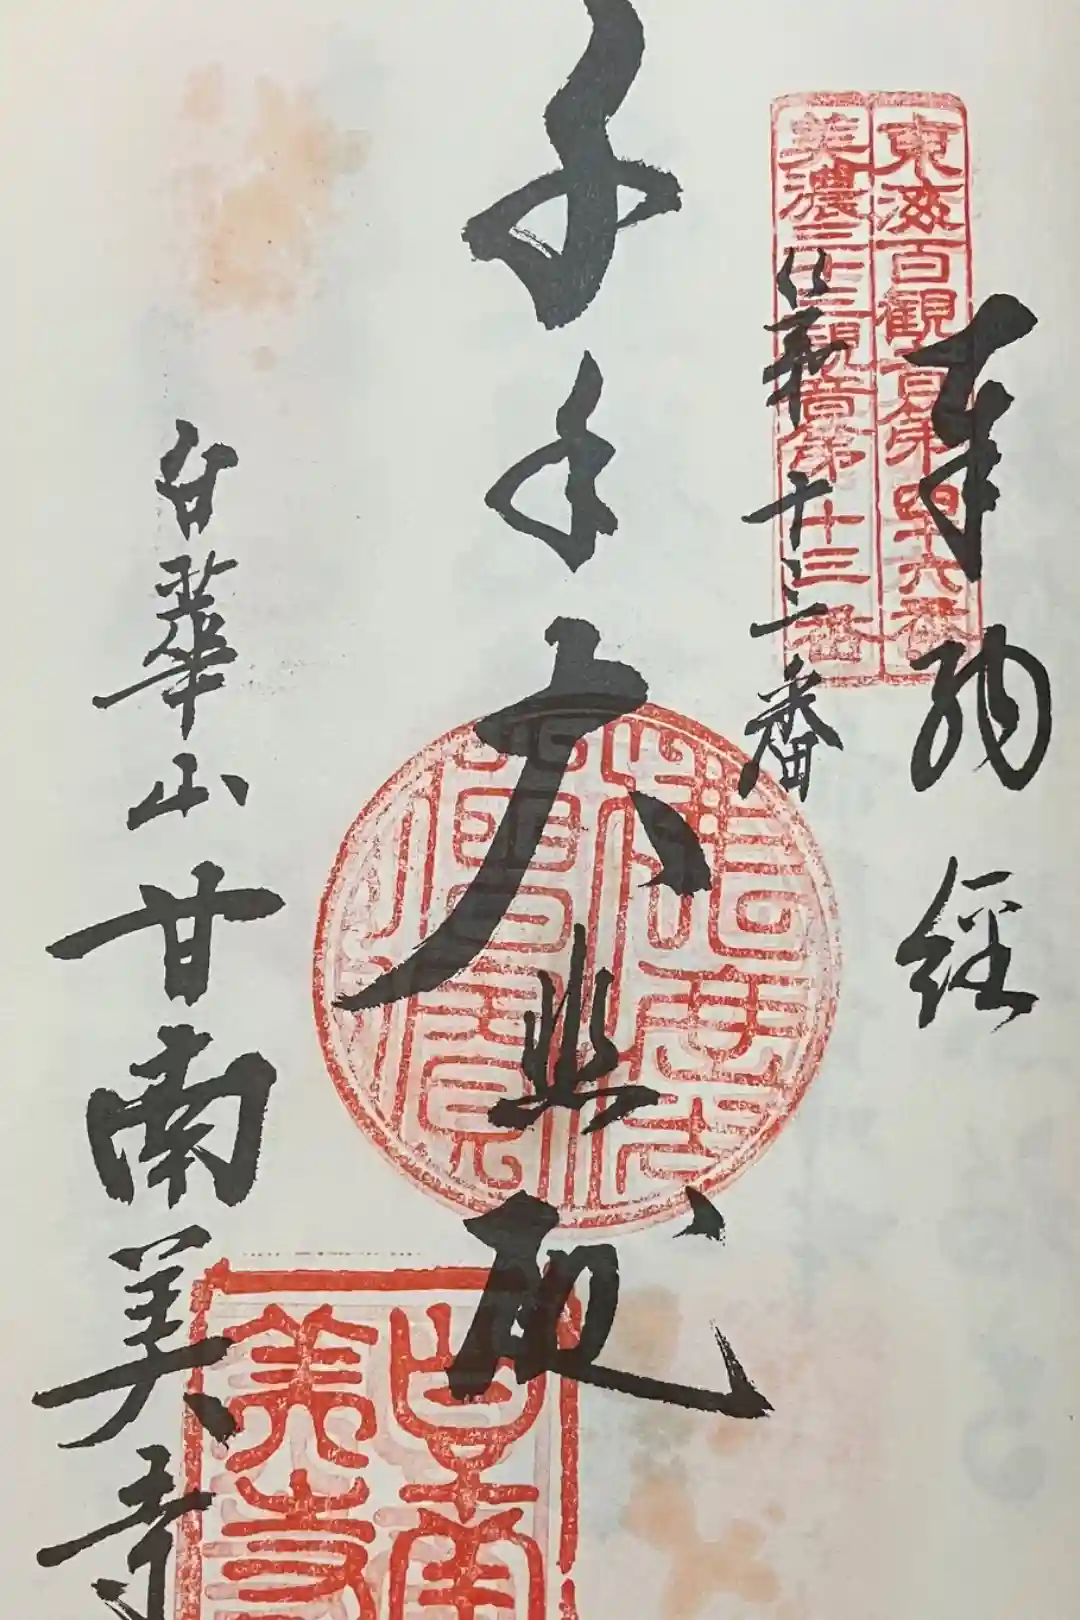 東海百観音第四十六番
美濃三十三観音第十三番
奉納経
第十三番
千手大悲殿
白華山甘南美寺
甘南
美寺